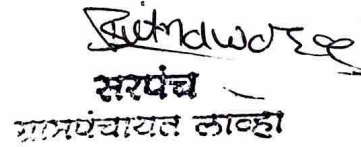 सरपंच
ग्रामपंचायत लाव्हा